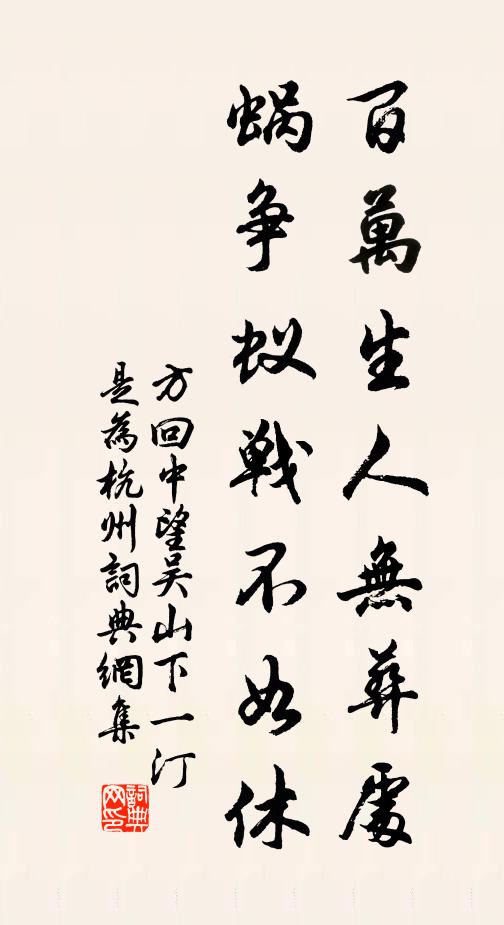 百萬生人無葬處
蝸争蚁戰不如休
方回中望吴山下一汀
是為杭州詞典網集
詞典
网印